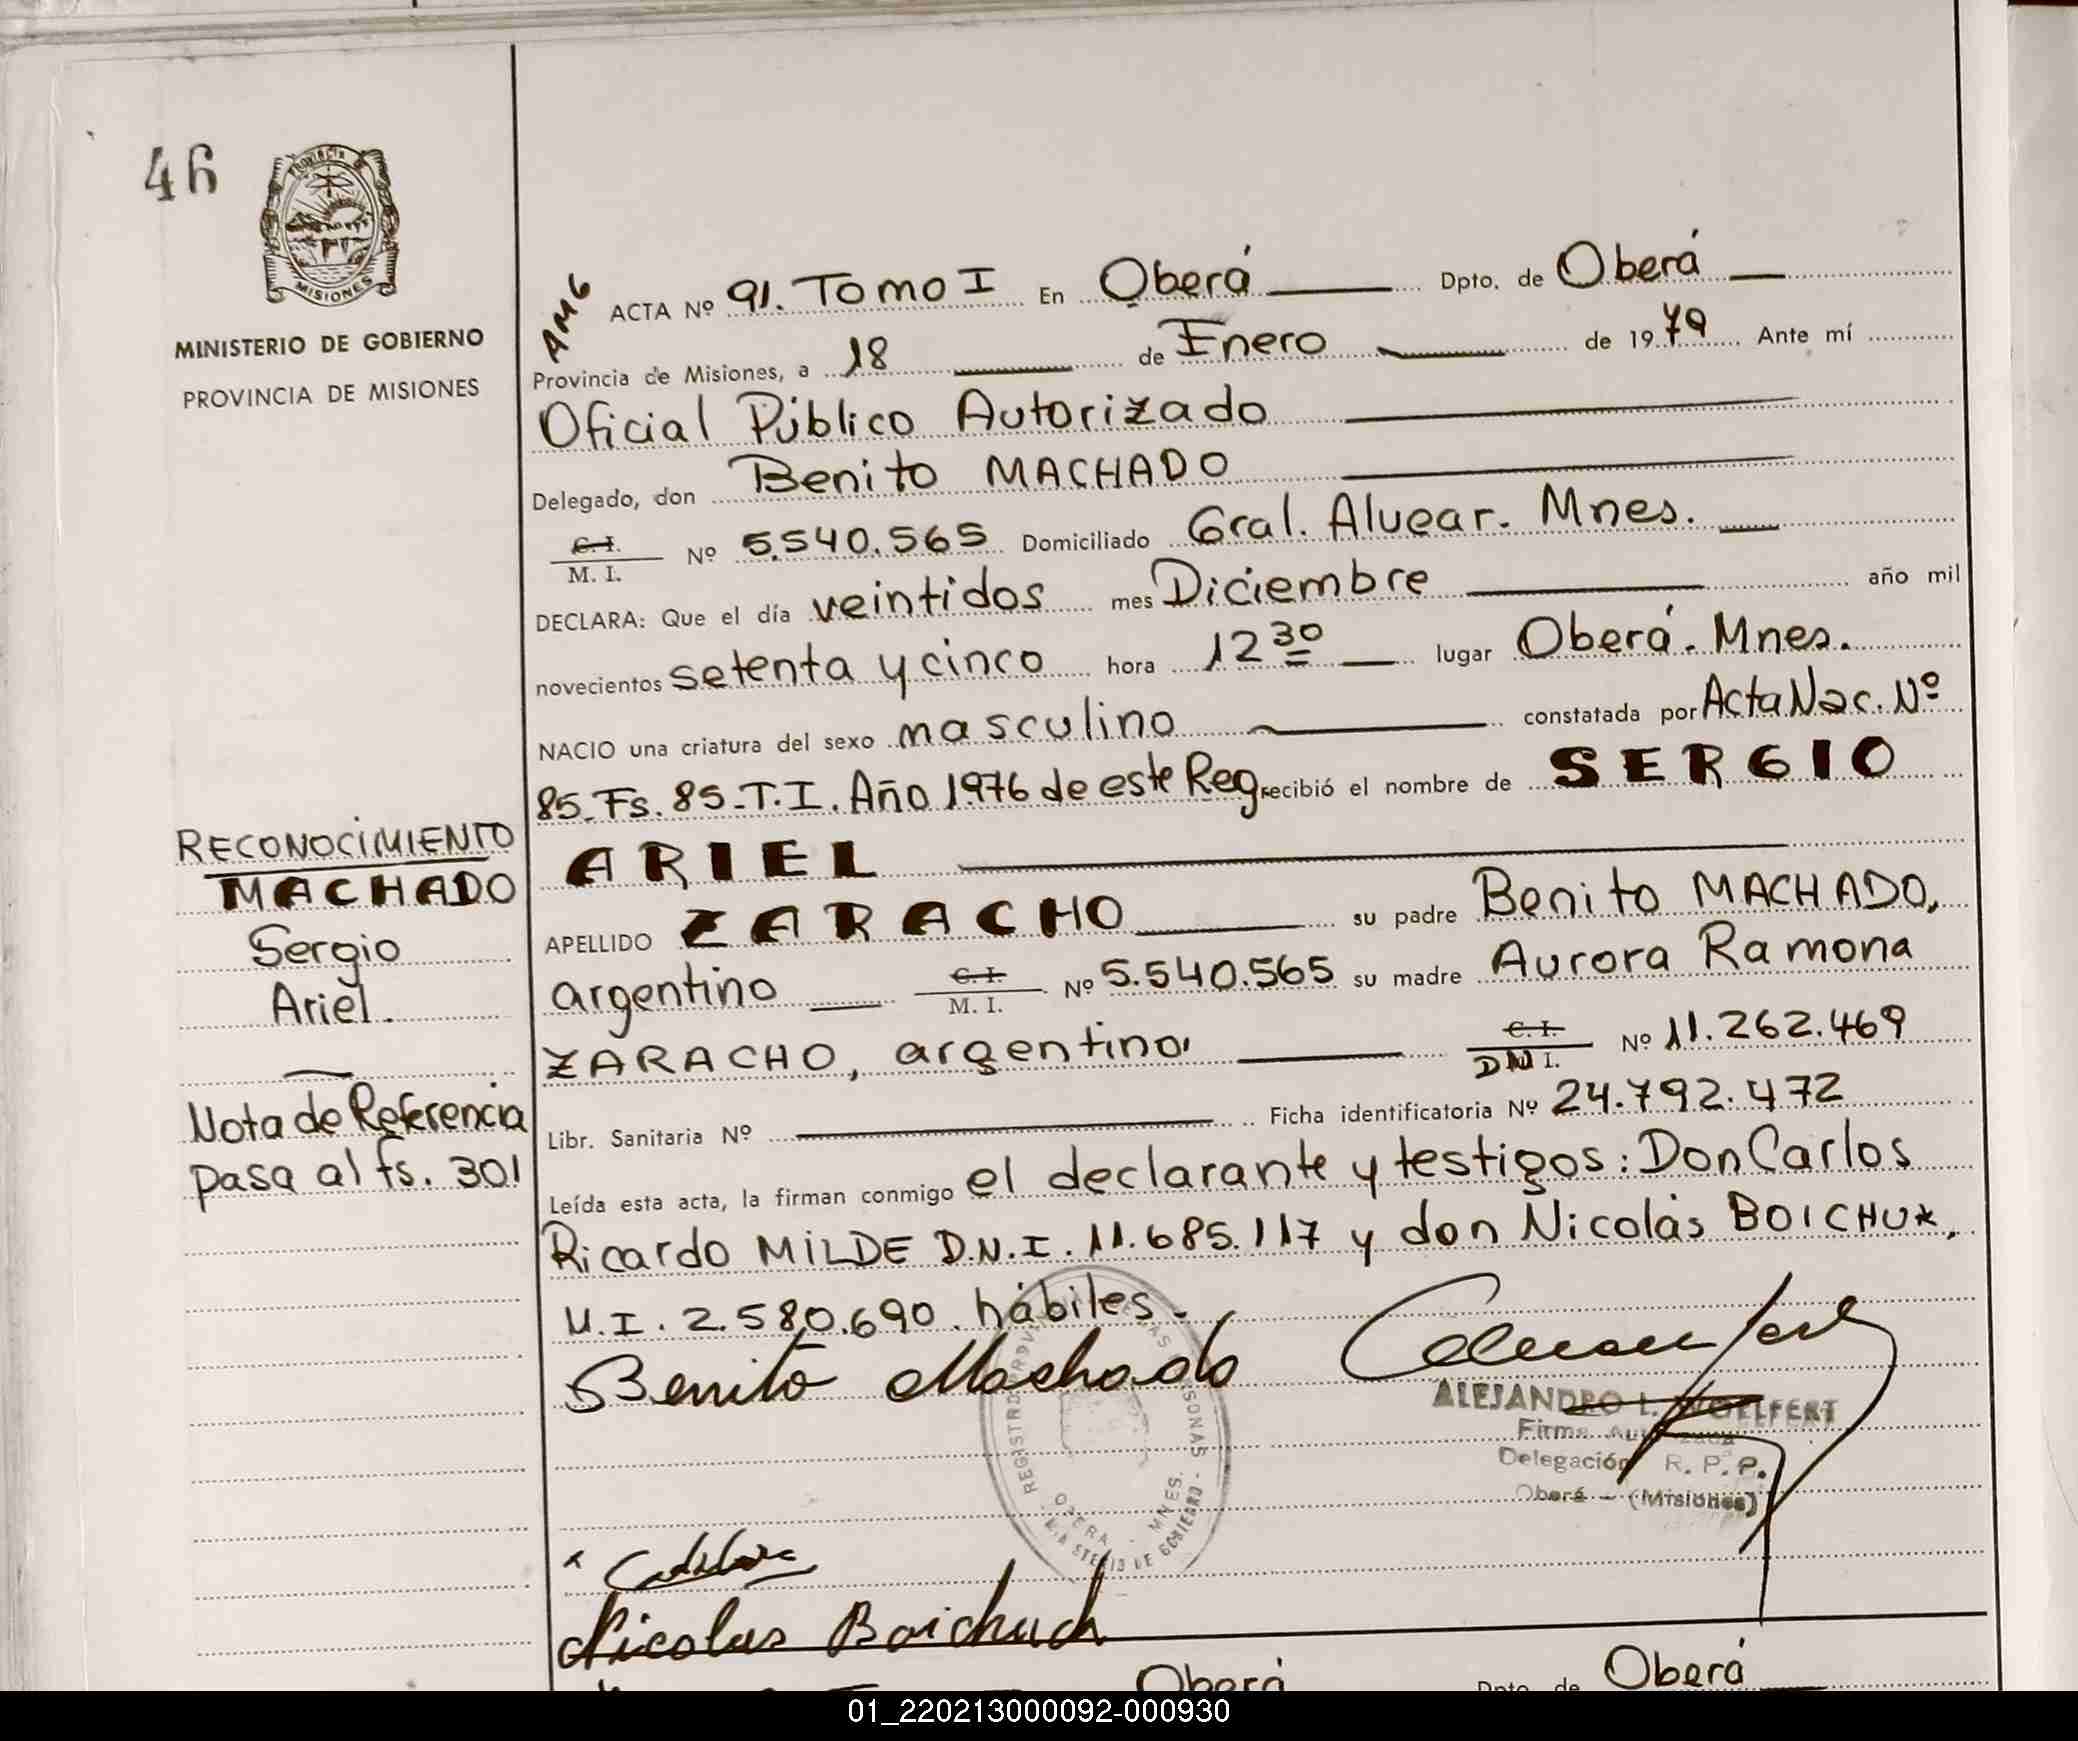 46
PROVINCIA DE
MISIONES
MINISTERIO DE GOBIERNO
PROVINCIA DE MISIONES
AMG
ACTA Nº 91. Tomo I En Oberá Dpto. de Oberá
Provincia de Misiones, a 18 de Enero de 1979 Ante mí
Oficial Público Autorizado
Delegado, don Benito MACHADO
C. I. M. I. Nº 5.540.565 Domiciliado Gral. Alvear. Mnes.
DECLARA: Que el día veintidos mes Diciembre año mil
novecientos setenta y cinco hora 12 30 lugar Oberá. Mnes.
NACIO una criatura del sexo masculino constatada por Acta Nac. Nº
85. Fs. 85. T. I. Año 1976 de este Reg recibió el nombre de SERGIO
ARIEL
APELLIDO ZARACHO su padre Benito MACHADO,
argentino C. I. M. I. Nº 5.540.565 su madre Aurora Ramona
ZARACHO, argentino. C. I. DNI. Nº 11.262.469
Libr. Sanitaria Nº Ficha identificatoria Nº 24.792.472
Leída esta acta, la firman conmigo el declarante y testigos: Don Carlos
Ricardo MILDE D.N.I. 11.685.117 y don Nicolás BOICHUK,
M.I. 2.580.690. hábiles.
RECONOCIMIENTO
MACHADO
Sergio
Ariel.
Nota de Referencia
pasa al fs. 301
Benito Machado
ALEJANDRO L. WOLLFERT
Firma Autorizada
Delegación R. P. P.
Oberá - (Misiones)
OBERA - MNES.
MINISTERIO DE GOBIERNO
Nicolas Boichuch
Oberá Dpto. de Oberá
01_220213000092-000930